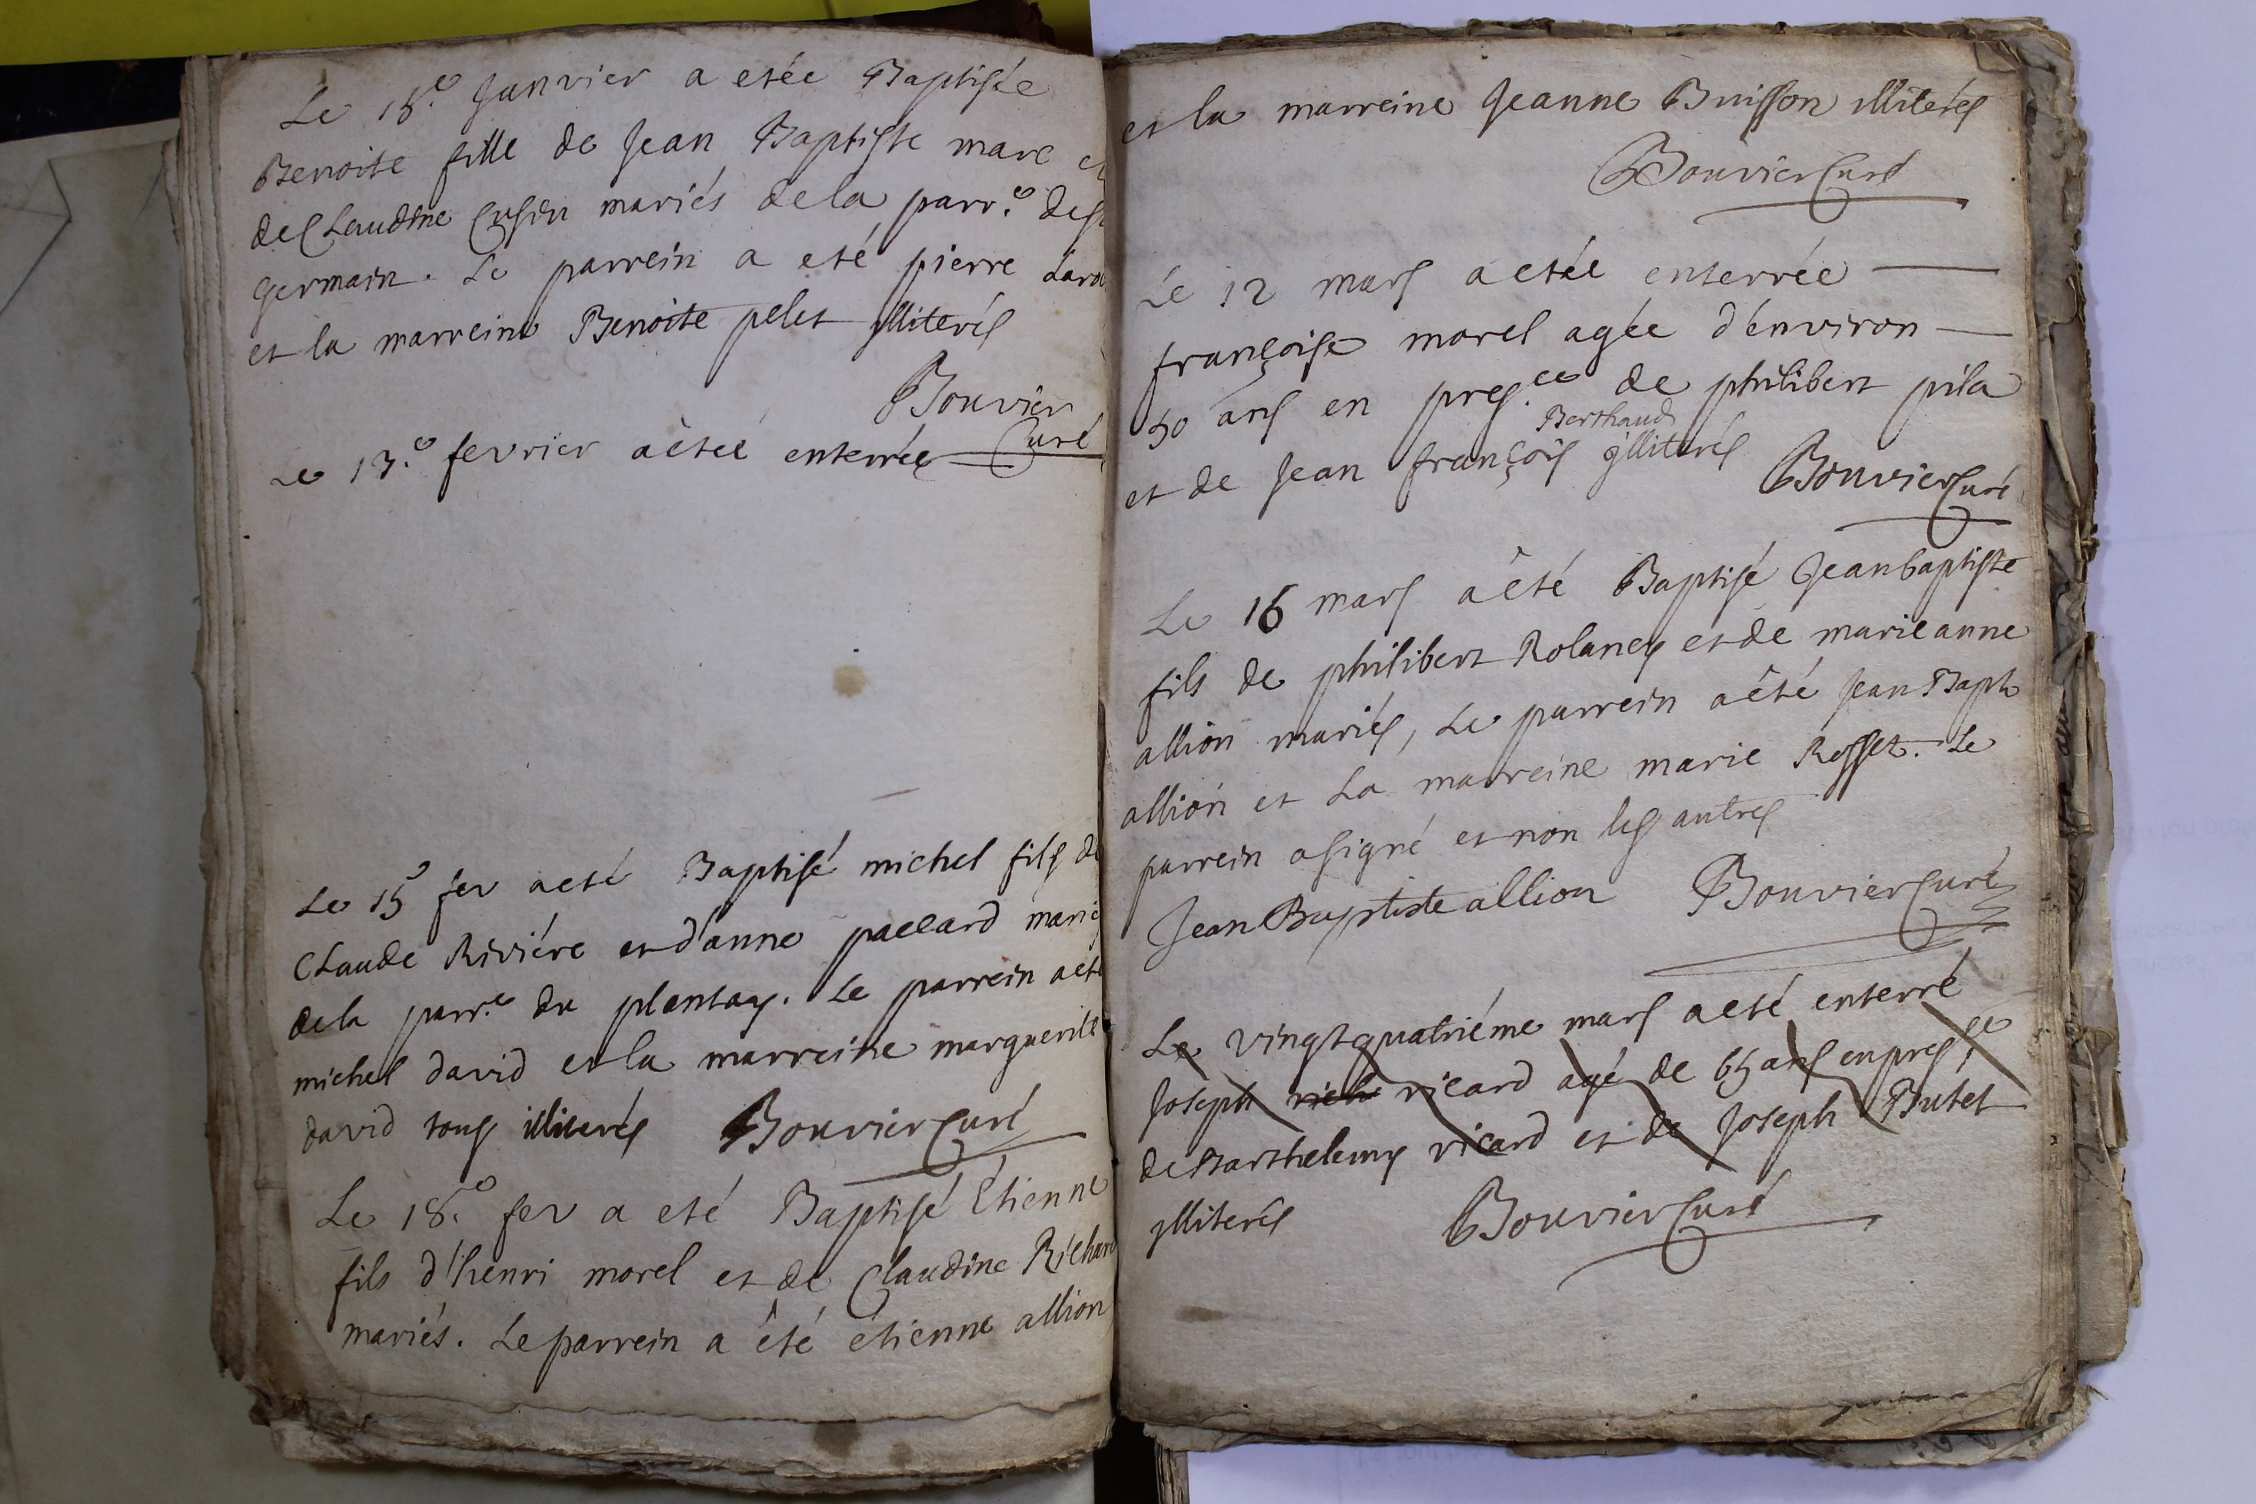 Le 18.e Janvier a etée Baptisée
Benoite fille de Jean Baptiste marc et
de Claudine Cusin mariés de la parr.e de st
germain. Le parrein a eté pierre
et la marreine Benoite pelet illiterés
Bouvier
Curé
Le 13.e fevrier a êtée enterrée
Le 15e fev a eté Baptisé michel fils de
Claude Riviére et d'anne paccard mariés
de la parr.e du plantay. Le parrein a eté
michel david et la marreine marguerite
david tous illiterés Bouvier Curé
Le 18.e fev a eté Baptisé Etienne
fils d'henri morel et de Claudine Richard
mariés. Le parrein a êté étienne allion
et la marreine Jeanne Buisson illiterés
Bouvier Curé
Le 12 mars a etée enterrée
françoise morel agée d'énviron
50 ans en pres.ce de philibert pila
Berthaud
et de Jean françois illiterés Bouvier Curé
Le 16 mars a êté Baptisé Jean baptiste
fils de philibert Rolancy et de marie anne
allion mariés, Le parrein a êté Jean Bapt
allion et La marreine marie Rosset. Le
parrein a signé et non les autres
Jean Baptiste allion Bouvier Curé
Le vingt quatriéme mars a eté enterré
Joseph ricard agé de 65 ans en pres.ce
de Barthelemy ricard et de Joseph Butet
illiterés Bouvier Curé